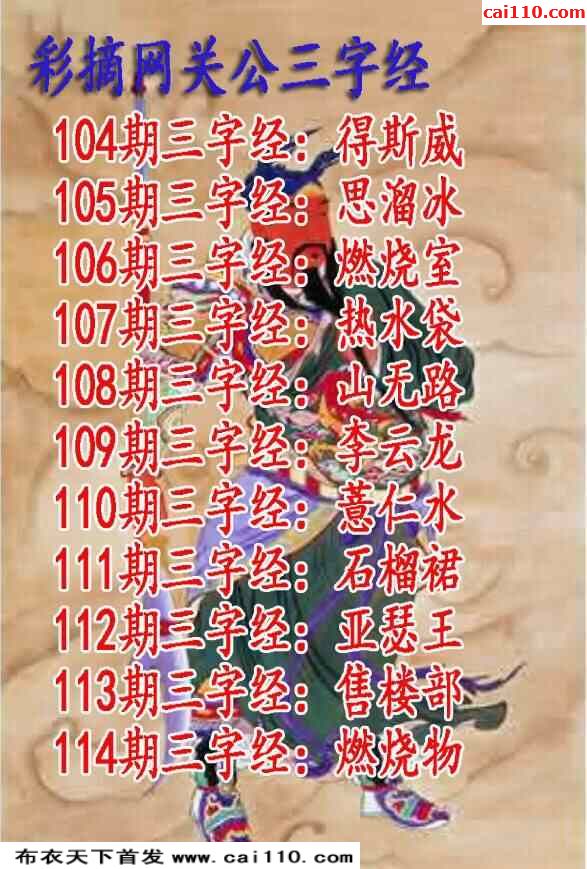 cai110.com
彩摘网关公三字经
104期三字经：得斯威
105期三字经：思溜冰
106期三字经：燃烧室
107期三字经：热水袋
108期三字经：山无路
109期三字经：李云龙
110期三字经：薏仁水
111期三字经：石榴裙
112期三字经：亚瑟王
113期三字经：售楼部
114期三字经：燃烧物
布衣天下首发 www.cai110.com